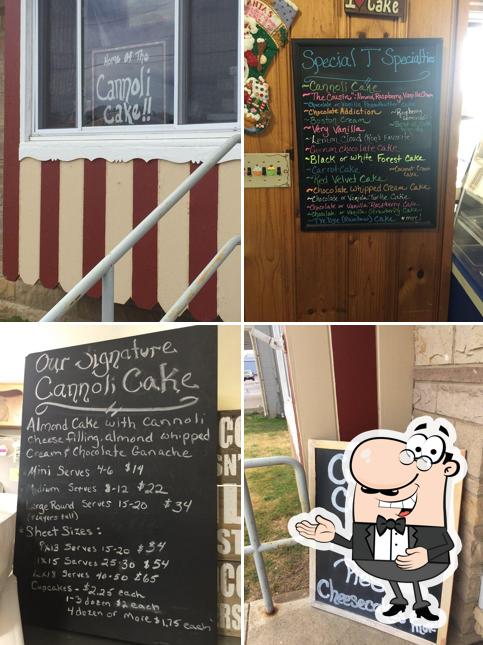 Home Of The
Cannoli
Cake!!
I ♥ Cake
Special T Specialties
~Cannoli Cake
~The Cousin: Almond, Raspberry, Vanilla Cream
~Chocolate or Vanilla Peanutbutter Cake
~Chocolate Addiction
~Raspberry
~Boston Cream
~Very Vanilla
~Lemon Cloud (Ron's Favorite)
~German Chocolate Cake
~Black or White Forest Cake
~Carrot Cake
~Coconut Cream Cake
~Red Velvet Cake
~Chocolate Whipped Cream Cake
~Chocolate or Vanilla Turtle Cake
~Chocolate or Vanilla Raspberry Cake
~Chocolate or Vanilla Strawberry Cake
~Tye Dye (Rainbow) Cake + more!
Our Signature
Cannoli Cake
Almond Cake with Cannoli
Cheese filling, almond whipped
Cream & Chocolate Ganache
Mini Serves 4-6 $14
Medium Serves 8-12 $22
Large Round Serves 15-20 $34
(layers tall)
Sheet Sizes:
9x13 Serves 15-20 $34
11x15 Serves 25-30 $54
12x18 Serves 40-50 $65
Cupcakes - $2.25 each
1-3 dozen $2 each
4 dozen or more $1.75 each